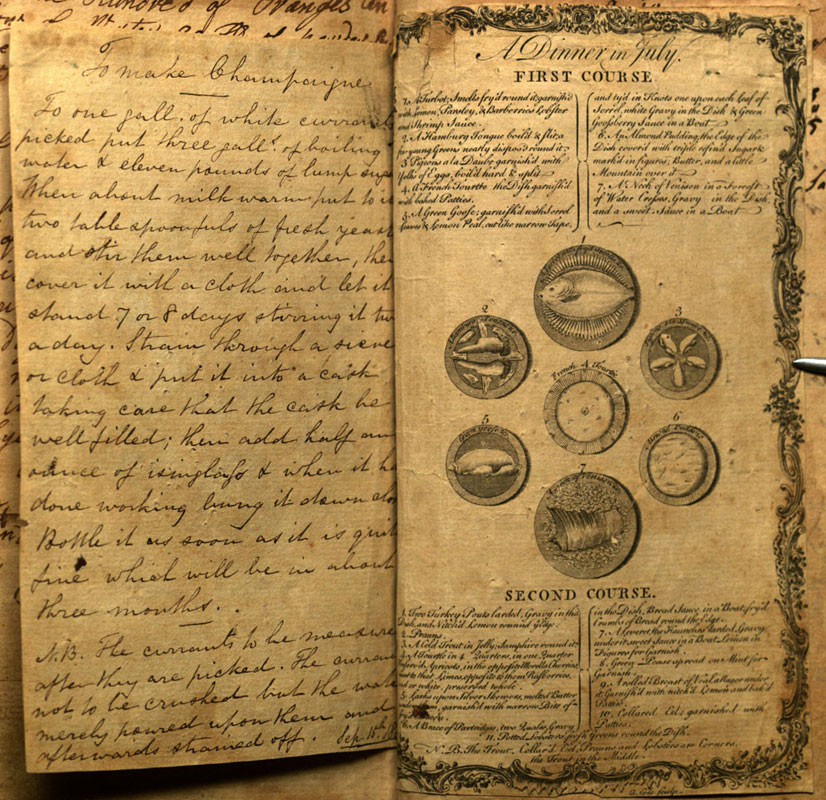 To make Champaigne
To one gall. of white currants
picked put three gall.s of boiling
water & eleven pounds of lump sugar
When about milk warm put to it
two table spoonfuls of fresh yeast
and stir them well together, then
cover it with a cloth and let it
stand 7 or 8 days stirring it
a day. Strain through a sieve
or cloth & put it into a cask
taking care that the cask be
well filled; then add half an
ounce of isinglass & when it
done working bung it down
Bottle it as soon as it is quit
fine which will be in about
three months.
N.B. The currants to be measure
after they are picked. The curran
not to be crushed but the
merely poured upon them and
afterwards strained off. Sep. 15th
A Dinner in July.
FIRST COURSE
1. A Turbot, Smelts fry'd round it, garnish'd
with Lemon, Parsley, & Barberries Lobster
and Shrimp Sauce.
2. A Hamburg Tongue boil'd & slic'd
for young Greens neatly dispos'd round it
3. Pigeons a la Daube garnish'd with
Yolks of Eggs, boil'd hard & split
4. A French Tourte the Dish garnish'd
with baked Patties.
5. A Green Goose; garnish'd with Sorrel
Leaves & Lemon Peal, cut like narrow Tape,
and ty'd in Knots one upon each Leaf of
Sorrel, white Gravy in the Dish & Green
Gooseberry Sauce in a Boat
6. An Almond Pudding, the Edge of the
Dish cover'd with triple refin'd Sugar &
mark'd in figures, Butter, and a little
Mountain over it
7. A Neck of Venison in a Forrest
of Water Cresses, Gravy in the Dish
and a sweet Sauce in a Boat
1
2
3
French 4 Tourte
5
Green Goose
6
Almond Pudding
7
SECOND COURSE.
1. Two Turkey Pouts larded, Gravy in the
Dish, and Nitch'd Lemons round y.e Edge.
2. Prawns.
3. A Cold Trout in Jelly, Samphire round it
4. A Tourtle in 4 Quarters, in one Quarter
Apricots, in the opposite Morella Cherries
Limes, opposite to them Rasberries,
or white, preserved whole.
5. upon Silver Skewers, melted Butter
garnish'd with narrow Bits of
6. A Brace of Partridges, two Quails, Gravy
in the Dish, Bread Sauce in a Boat, fry'd
Crumbs of Bread round the Edge.
7. A Leveret, the Haunches larded, Gravy
under it, sweet Sauce in a Boat, Lemon in
Figures for Garnish.
8. Green Pease spread on Mint for
Garnish
9. A rolled Breast of Veal, a Ragoo under
it, Garnish'd with nitch'd Lemon and bak'd
Patties.
10. Collared Eel; garnished with
Patties.
11. Potted Lobsters, fresh Greens round the Dish.
N.B. The Trout, Collar'd Eel, Prawns and Lobsters are Corners,
the Trout in the Middle